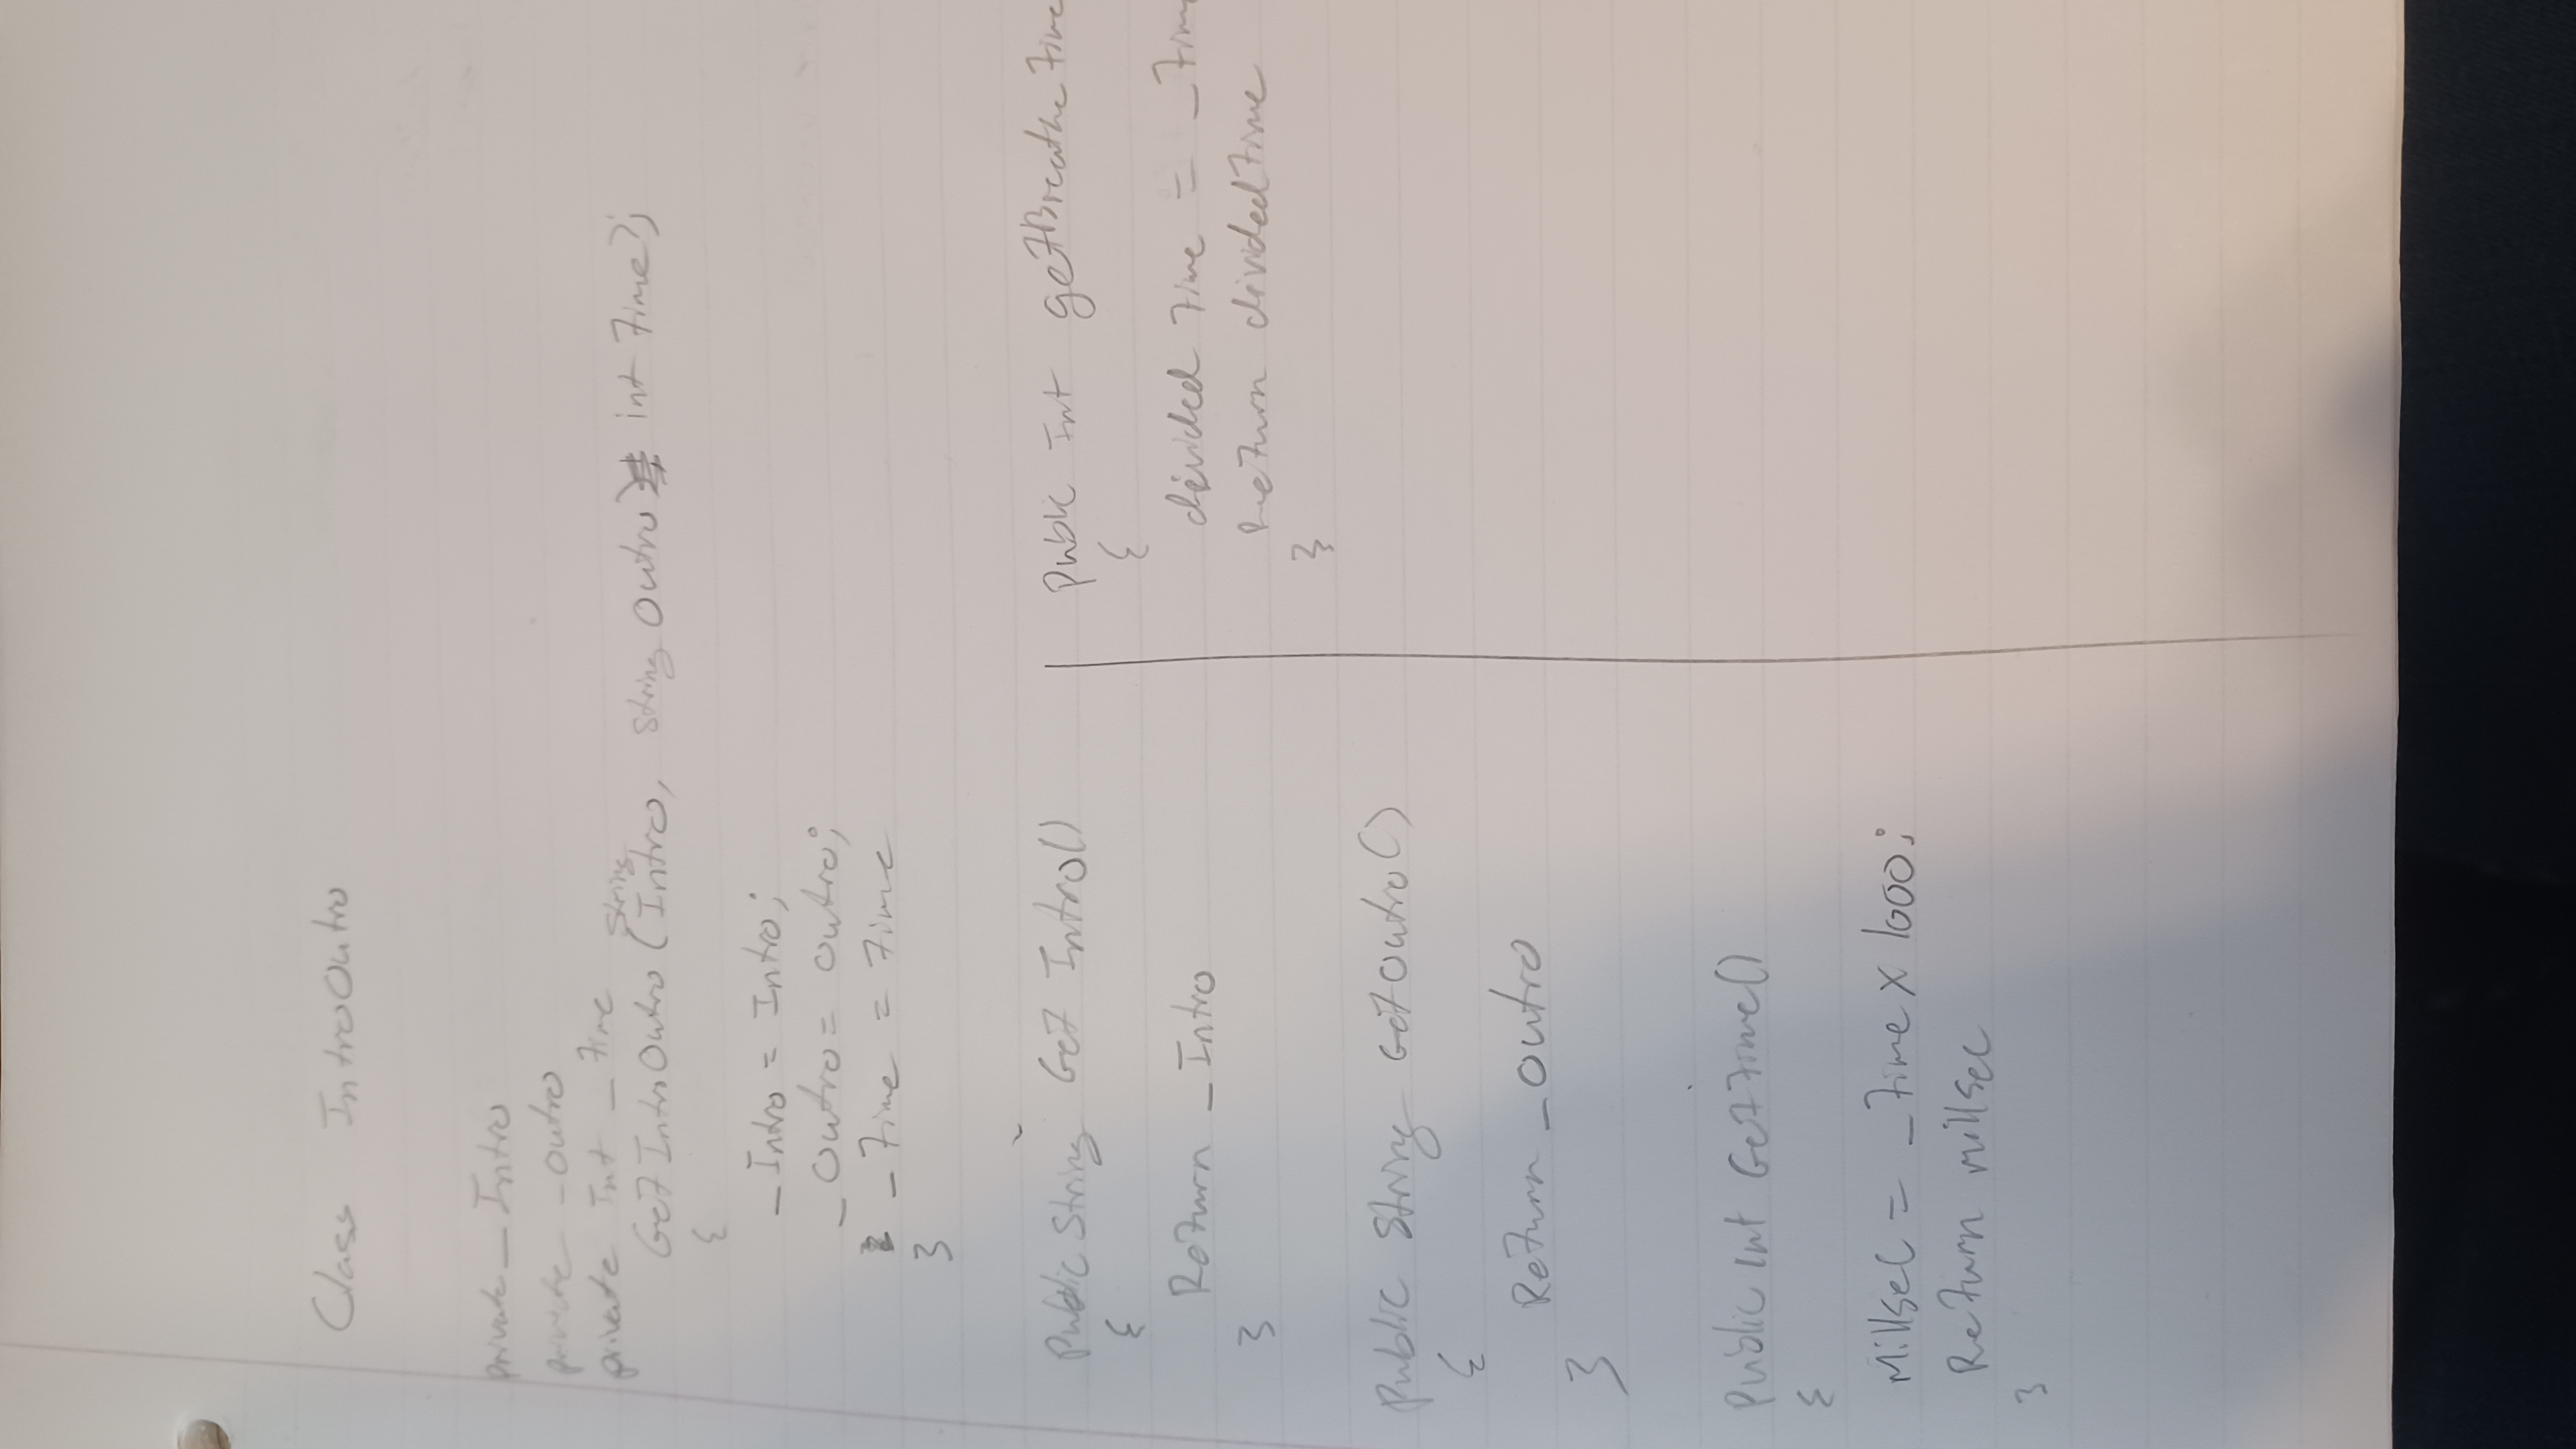 Class IntroOutro
private _Intro
private _outro
private Int _Time
String
GetIntroOutro (Intro, String Outro int Time);
{
_Intro = Intro;
_Outro = outro;
_Time = Time
}
Public String Get Intro()
{
Return _Intro
}
Public String GetOutro()
{
Return _outro
}
Public int GetTime()
{
Millsec = _Time x 1000;
Return millsec
}
Public Int getBreathe Time
{
divided Time = _Tim
Return dividedTime
}